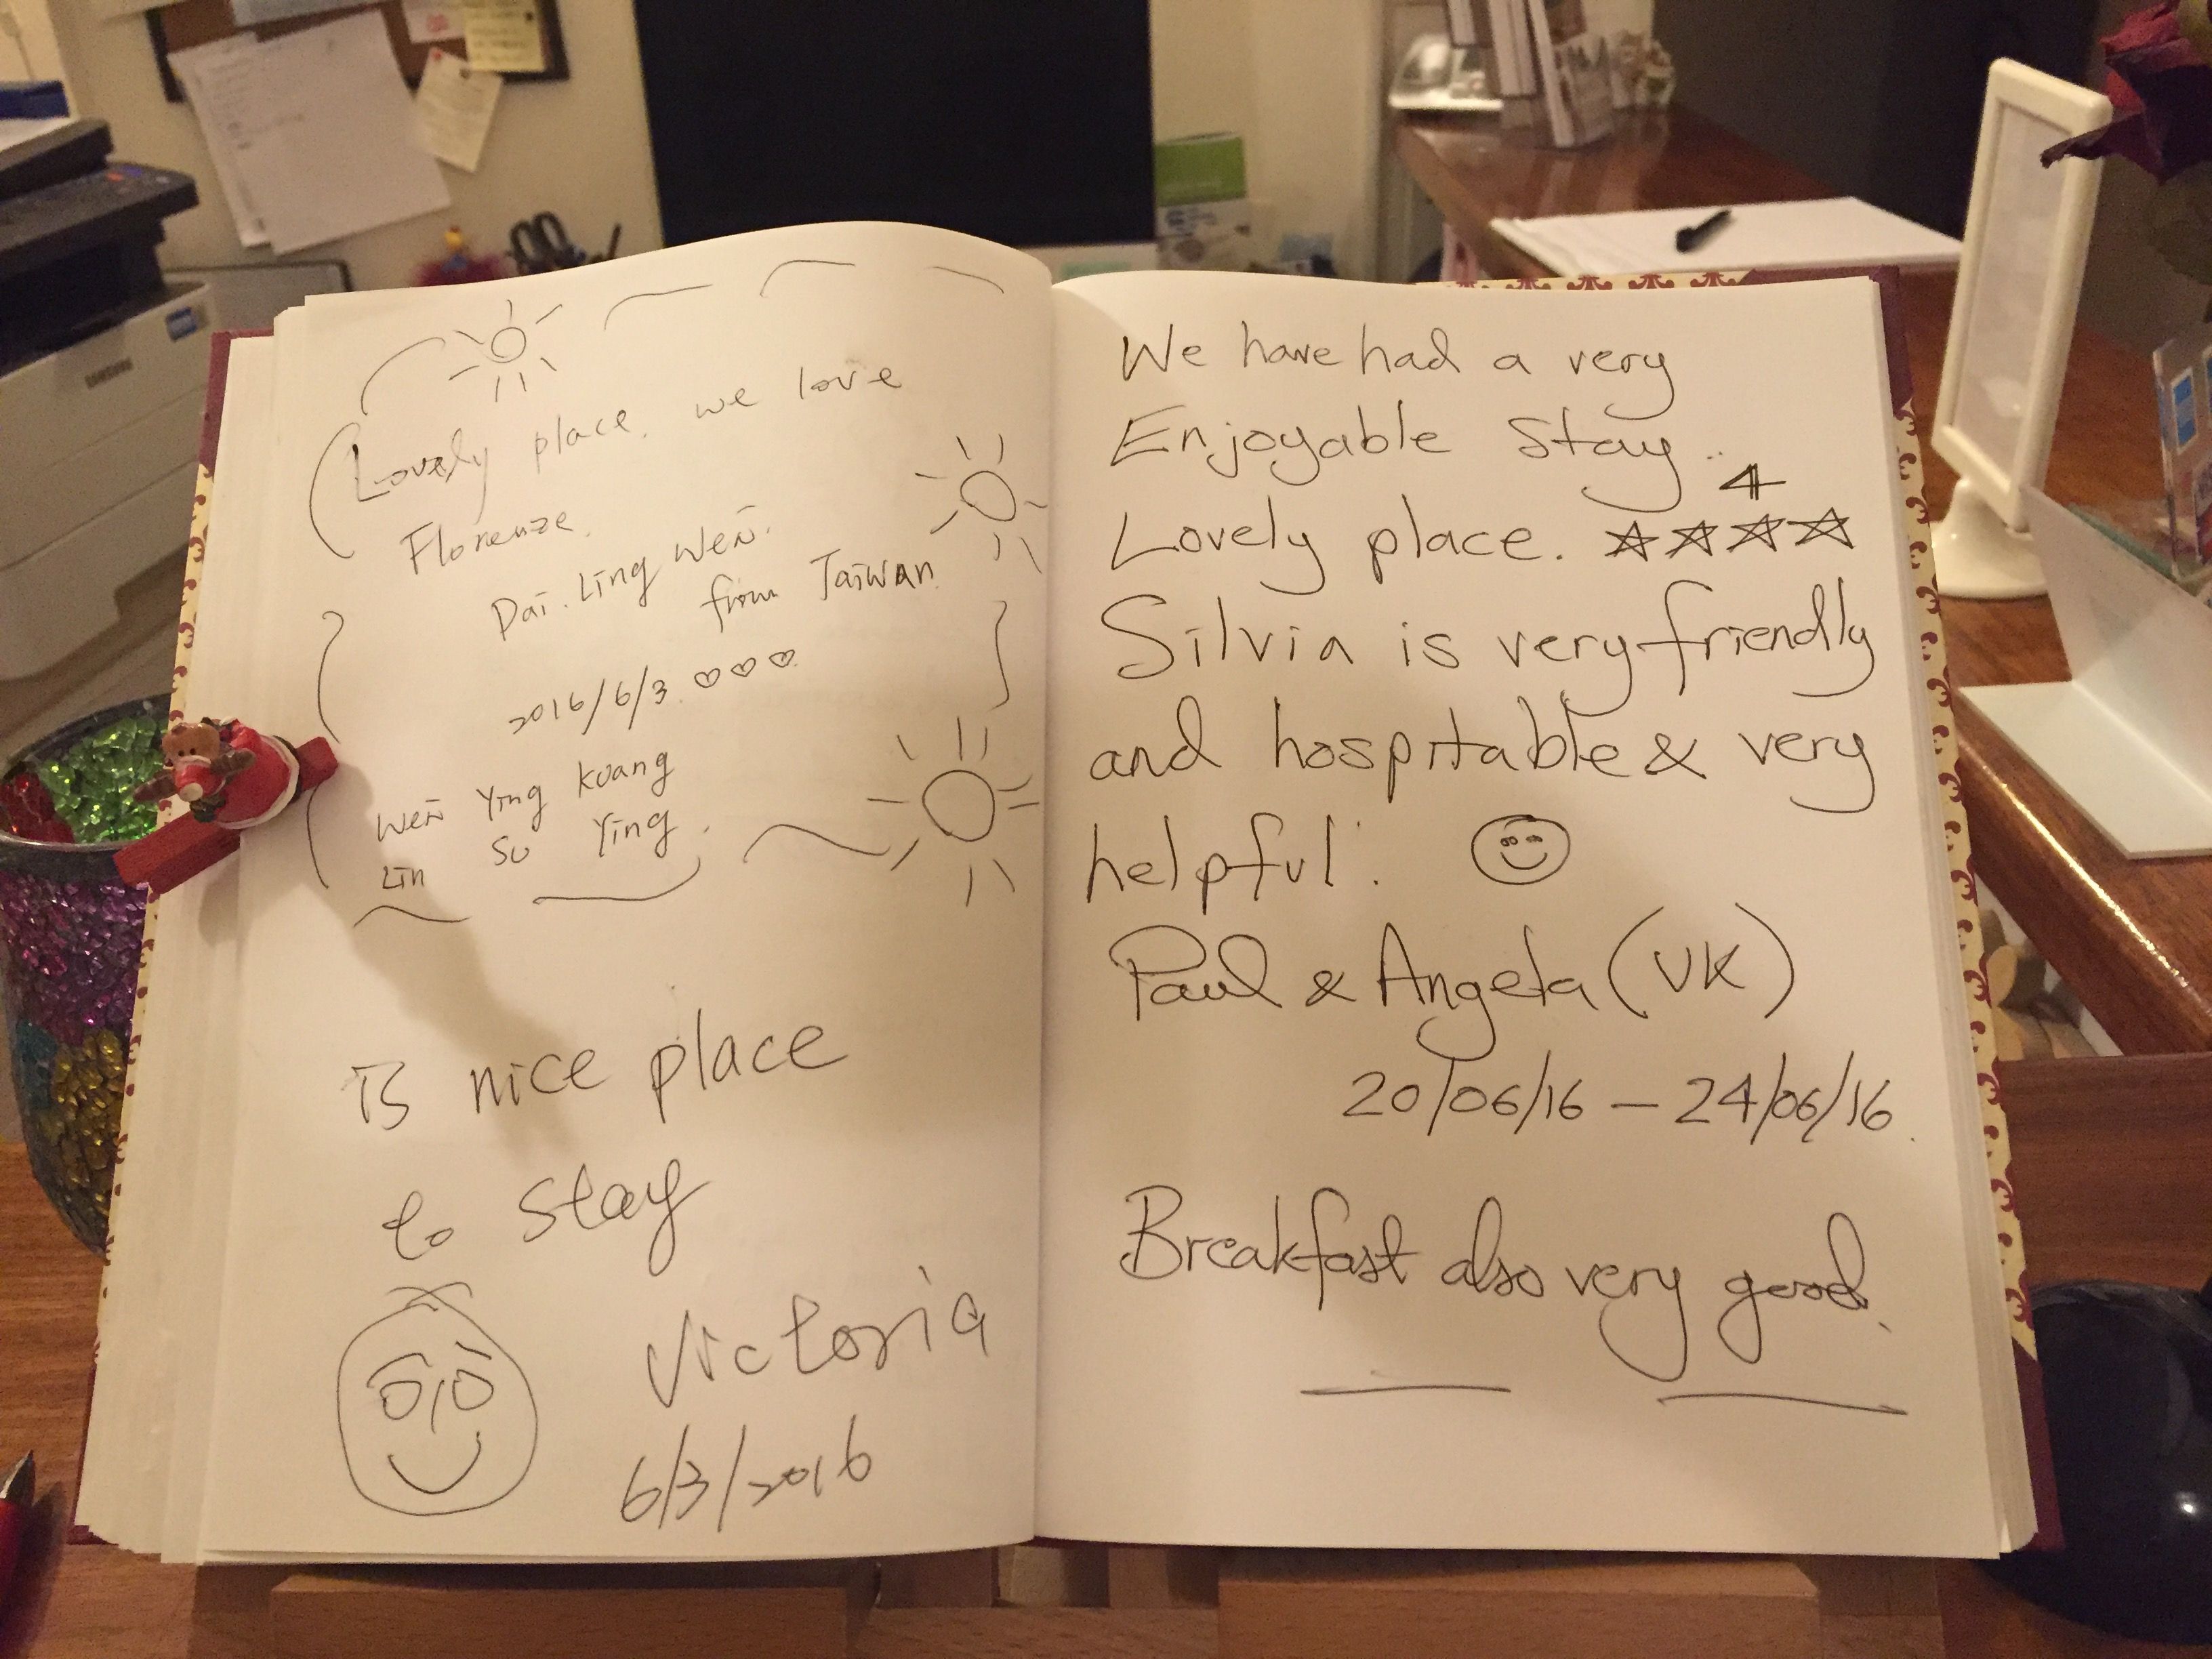 Lovely place. we love
Florenze.
Dai. Ling Wen.
from Taiwan.
2016/6/3 ♡♡♡
Wen Ying Kuang
Lin Su Ying.
Is nice place
to stay
Victoria
6/3/2016
We have had a very
Enjoyable Stay..
4
Lovely place. ☆☆☆☆
Silvia is very friendly
and hospitable & very
helpful.
Paul & Angela (UK)
20/06/16 – 24/06/16.
Breakfast also very good.